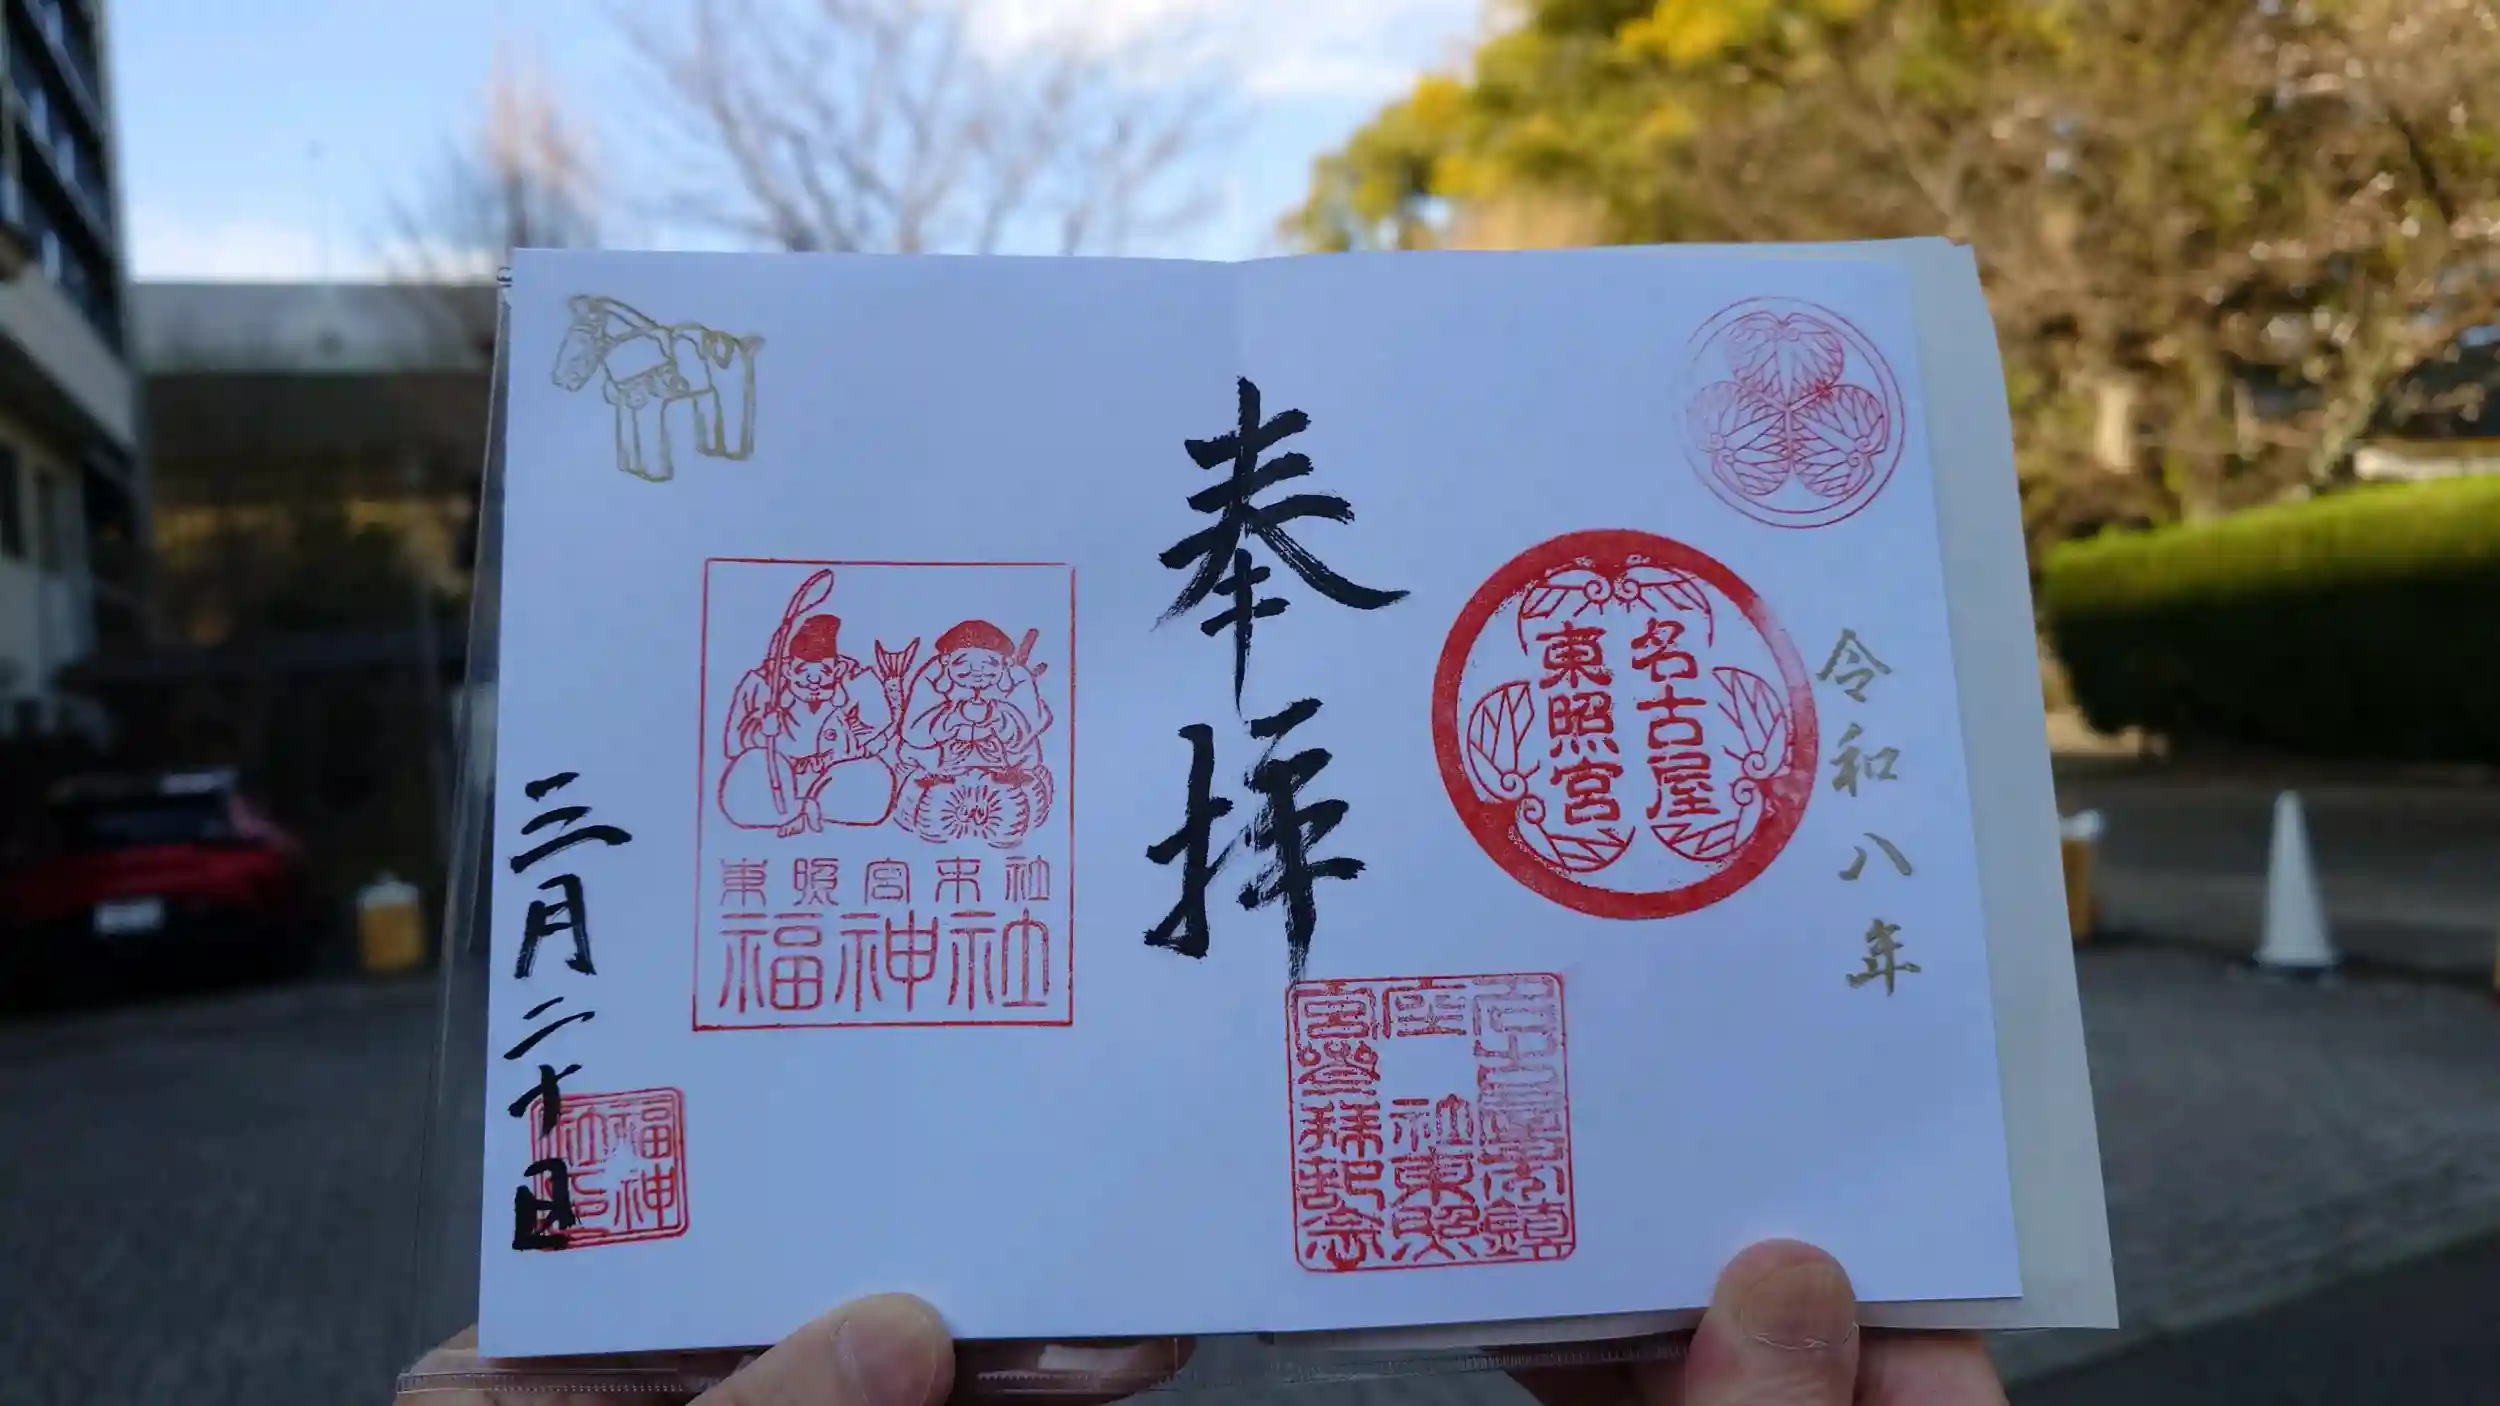 令和八年
名古屋
東照宮
奉拝
座 社東照
宮參拜記念
東照宮末社
福神社
福神
社印
三月二十日